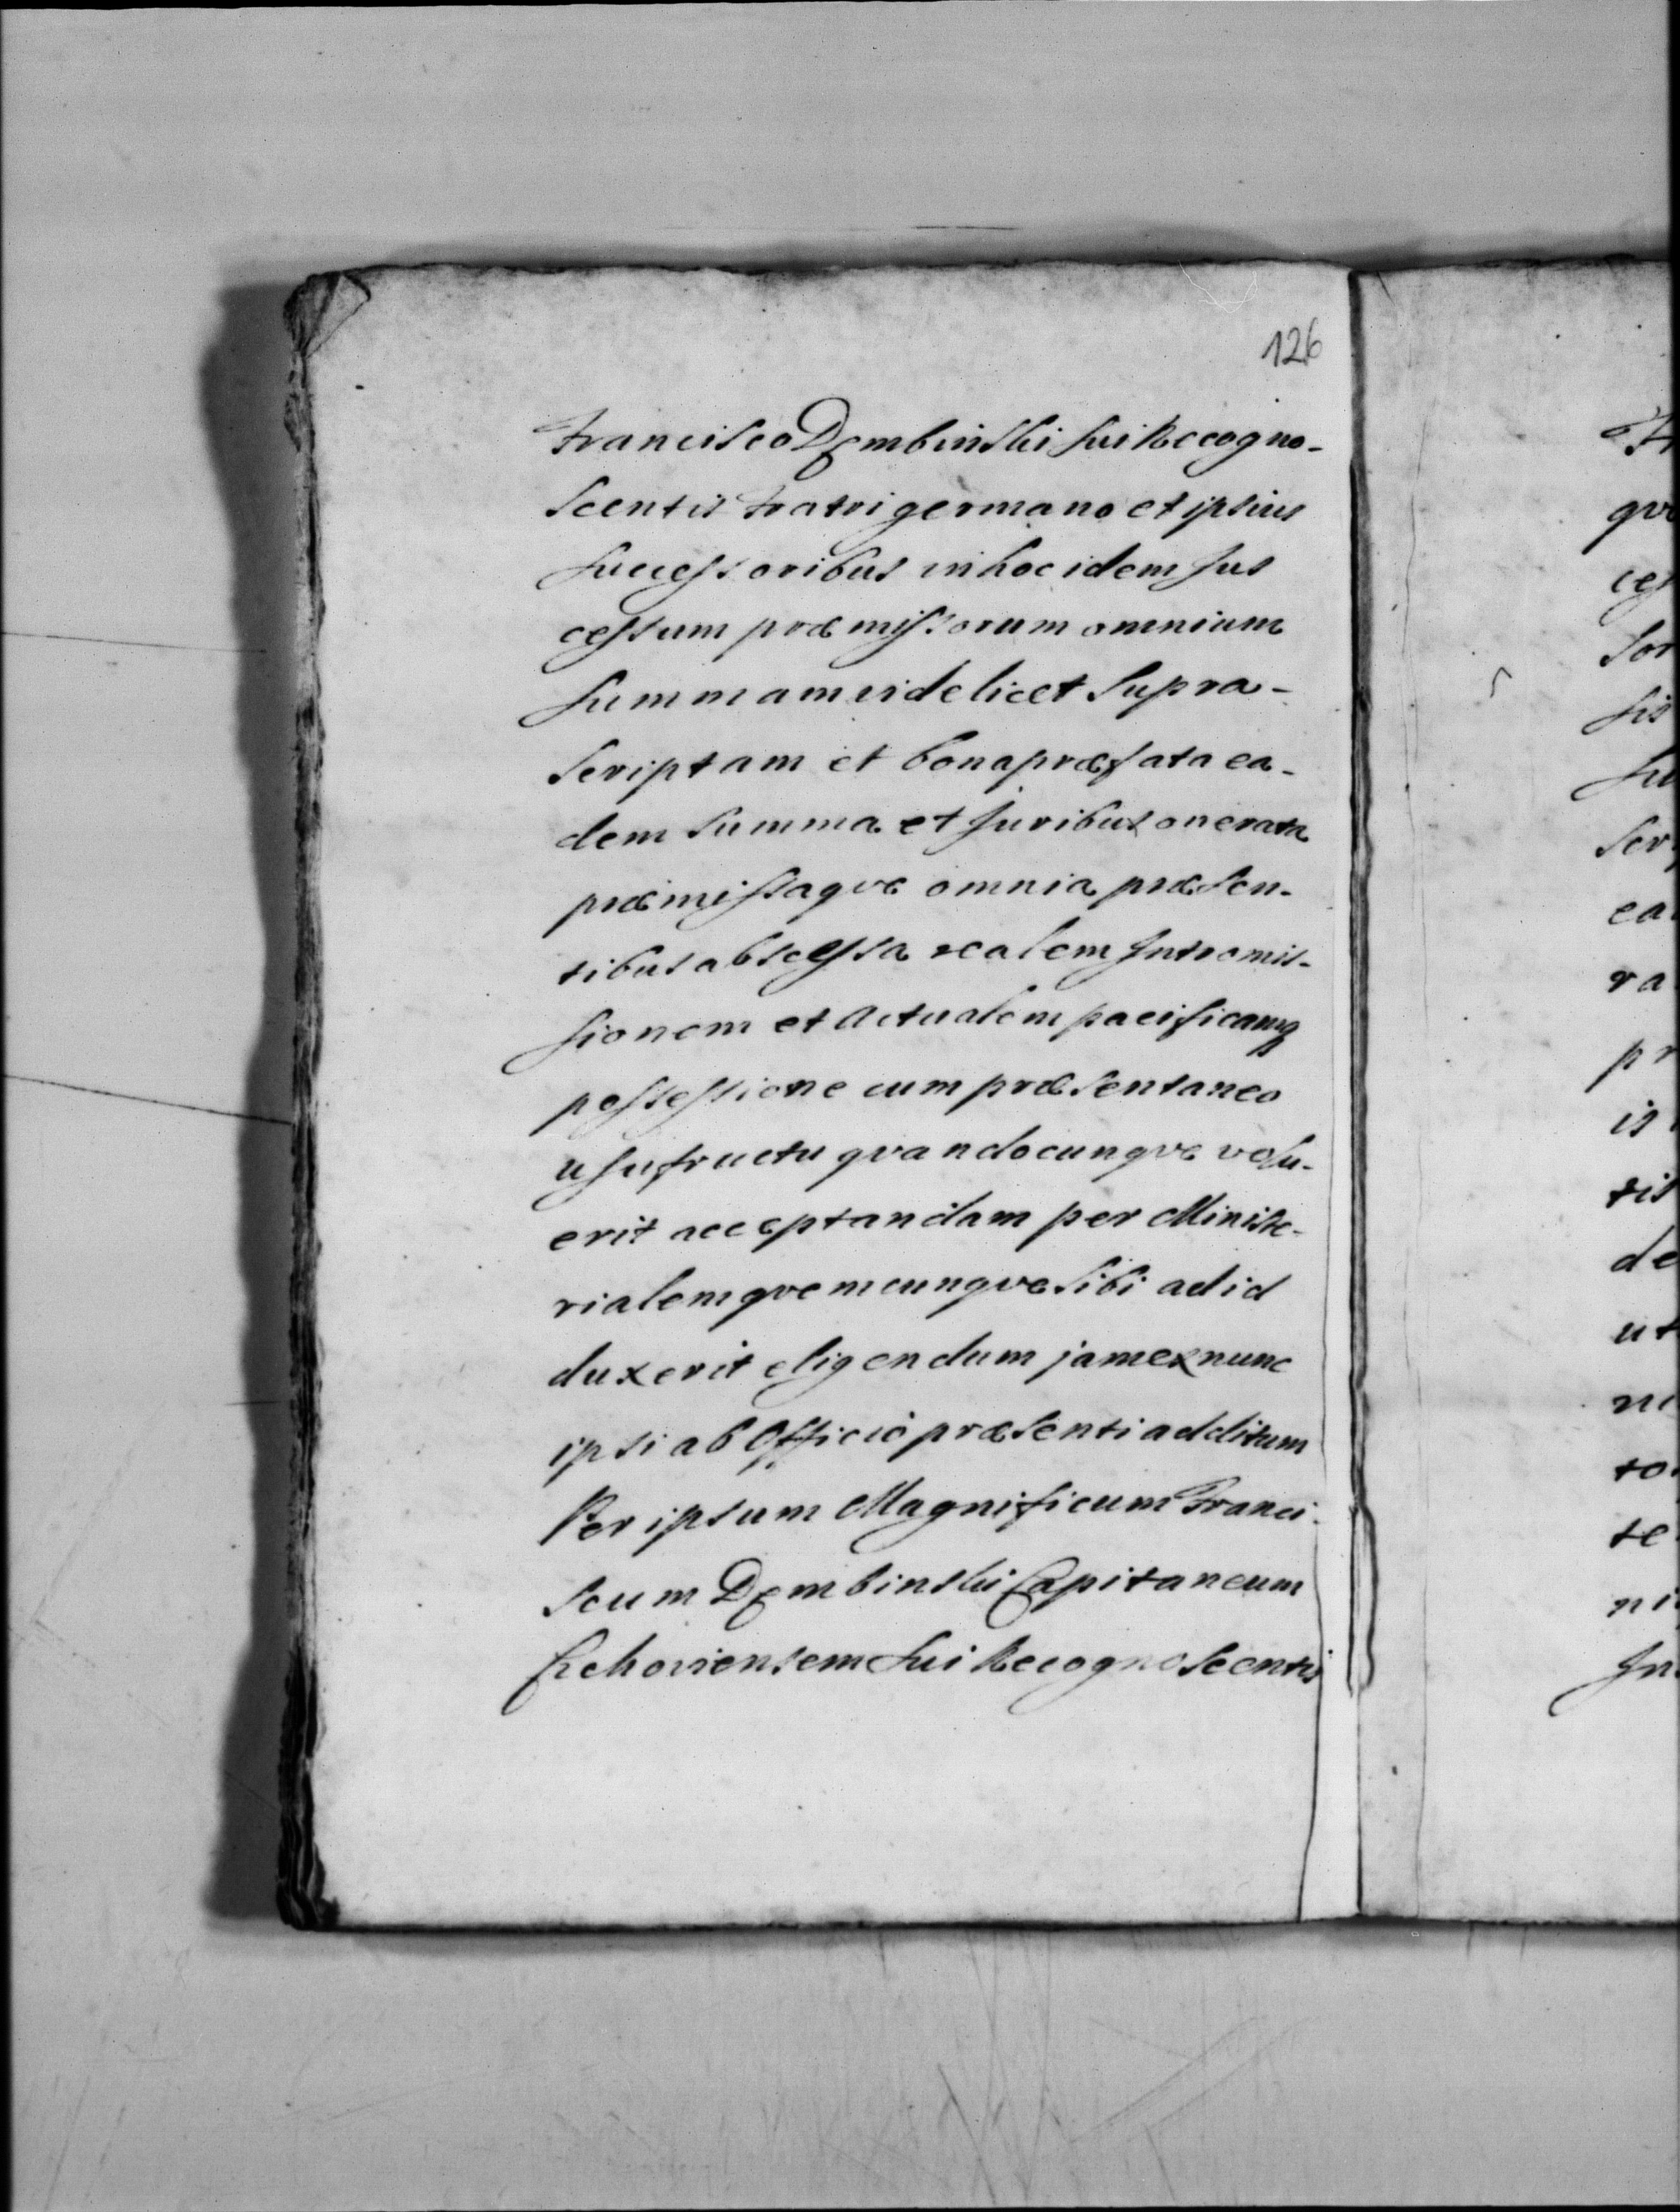 126
Francisco Dęmbinski sui Recogno-
scentis Fratri germano et ipsius
Successoribus in hoc idem Jus
cessum præmissorum omnium
Summam videlicet Supra-
scriptam et bona præfata ea-
dem Summa et Juribus onerata
præmissaqve omnia præsen-
tibus abscessa realem Intromis-
sionem et Actualem pacificamq
possessione cum præsentaneo
usufructu qvandocunqve volu-
erit acceptandam per Ministe-
rialem qvemcunqve sibi ad id
duxerit eligendum jam ex nunc
ipsi ab Officio præsenti additum
Per ipsum Magnificum Franci-
scum Dęmbinski Capitaneum
sui Recognoscentis
Fr
qv
ces
sor
sis
su
scr
ea
ra
pr
is
tis
de
ut
ni
to
te
ni
In